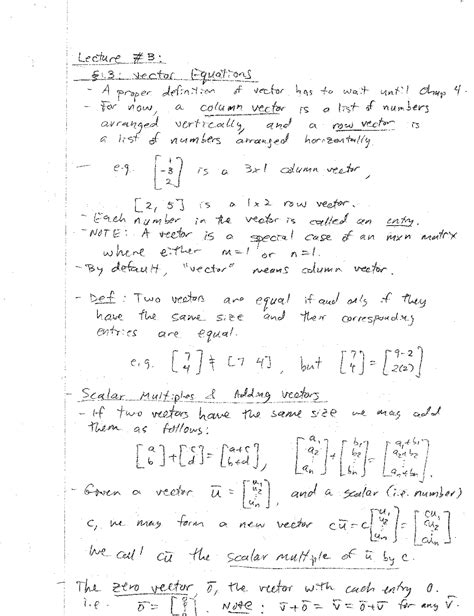 Lecture #3:
§1.3: Vector Equations
- A proper definition of vector has to wait until Chap 4.
- For now, a column vector is a list of numbers
arranged vertically, and a row vector is
a list of numbers arranged horizontally.
- e.g. [1 -3 2] is a 3x1 column vector,
[2, 5] is a 1x2 row vector.
- Each number in the vector is called an entry.
- NOTE: A vector is a special case of an mxn matrix
where either m=1 or n=1.
- By default, "vector" means column vector.
- Def: Two vectors are equal if and only if they
have the same size and their corresponding
entries are equal.
e.g. [7 4] ≠ [7 4], but [7 4] = [9-2 2(2)]
- Scalar Multiples & Adding vectors
- If two vectors have the same size we may add
them as follows:
[a b] + [c d] = [a+c b+d], [a₁ a₂ ⋮ aₙ] + [b₁ b₂ ⋮ bₙ] = [a₁+b₁ a₂+b₂ ⋮ aₙ+bₙ]
- Given a vector ū = [u₁ u₂ ⋮ uₙ], and a scalar (i.e. number)
c, we may form a new vector cū = c[u₁ u₂ ⋮ uₙ] = [cu₁ cu₂ ⋮ cuₙ]
We call cū the scalar multiple of ū by c.
- The zero vector ō, the vector with each entry 0.
i.e. ō = [0 ⋮ 0]. Note: v̄+ō = v̄ = ō+v̄ for any v̄